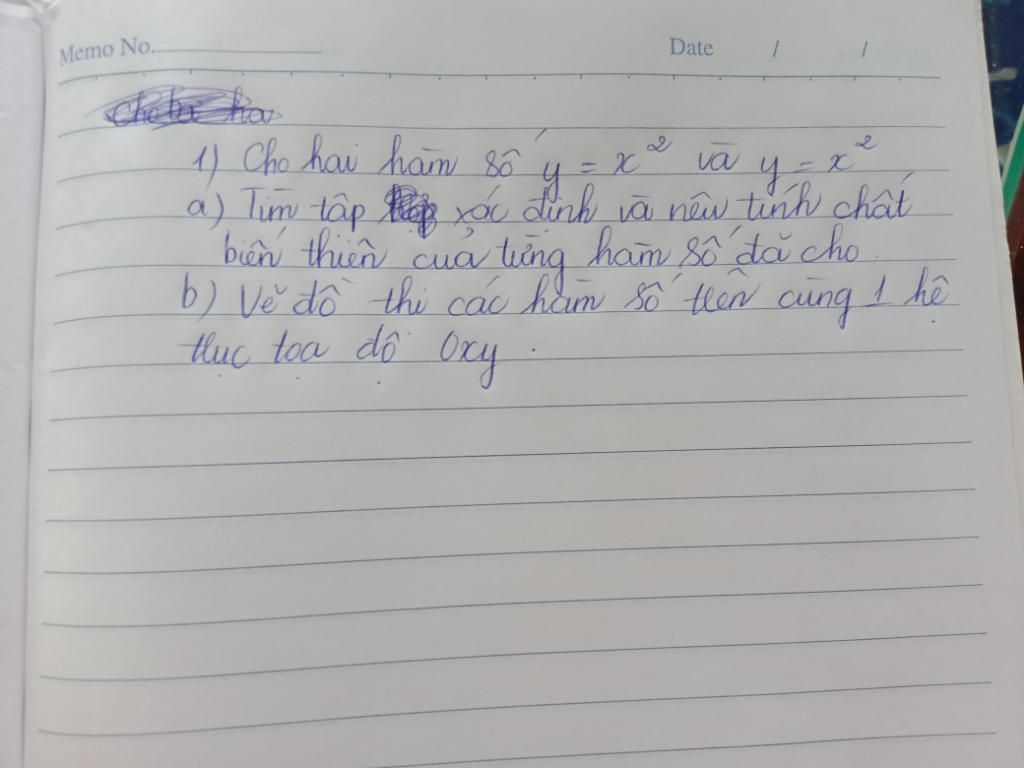 Memo No.
Date / /
1) Cho hai hàm số y = x² và y = x²
a) Tìm tập xác định và nêu tính chất
biến thiên của từng hàm số đã cho
b) Vẽ đồ thị các hàm số trên cùng 1 hệ
trục tọa độ Oxy.